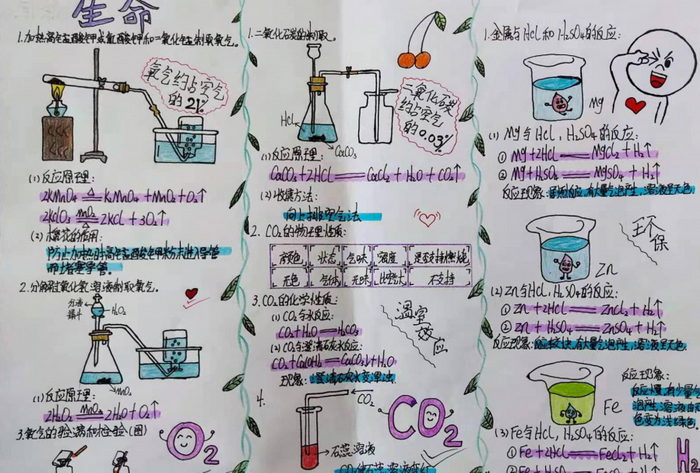 生命
1.加热高锰酸钾或氯酸钾和二氧化锰制取氧气。
氧气约占空气的21%
(1)反应原理:
2KMnO₄ =△= K₂MnO₄+MnO₂+O₂↑
2KClO₃ =MnO₂ △= 2KCl+3O₂↑
(2)棉花的作用:
防止加热时高锰酸钾粉末进入导管
而堵塞导管。
2.分解过氧化氢溶液制取氧气。
分液漏斗
H₂O₂
MnO₂
(1)反应原理:
2H₂O₂ =MnO₂= 2H₂O+O₂↑
3.氧气的验满和检验(图)
O₂
1.二氧化碳的制取。
HCl
CaCO₃
二氧化碳约占空气的0.03%
(1)反应原理:
CaCO₃+2HCl=CaCl₂+H₂O+CO₂↑
(2)收集方法:
向上排空气法
2.CO₂的物理性质:
颜色 状态 气味 密度 是否支持燃烧
无色 气体 无味 比空气大 不支持
3.CO₂的化学性质:
(1)CO₂与水反应:
CO₂+H₂O=H₂CO₃
(2)CO₂与澄清石灰水反应:
CO₂+Ca(OH)₂=CaCO₃↓+H₂O
现象:澄清石灰水变浑浊
温室效应
4.
CO₂
石蕊溶液
CO₂
1.金属与HCl和H₂SO₄的反应:
Mg
(1)Mg与HCl、H₂SO₄的反应:
①Mg+2HCl=MgCl₂+H₂↑
②Mg+H₂SO₄=MgSO₄+H₂↑
反应现象:剧烈反应,有大量气泡产生,溶液呈无色
Zn
王不保
(2)Zn与HCl、H₂SO₄的反应:
①Zn+2HCl=ZnCl₂+H₂↑
②Zn+H₂SO₄=ZnSO₄+H₂↑
反应现象:反应较快,有大量气泡产生,溶液呈无色
Fe
反应现象:
反应慢,有少量
(3)Fe与HCl、H₂SO₄的反应:
①Fe+2HCl=FeCl₂+H₂↑